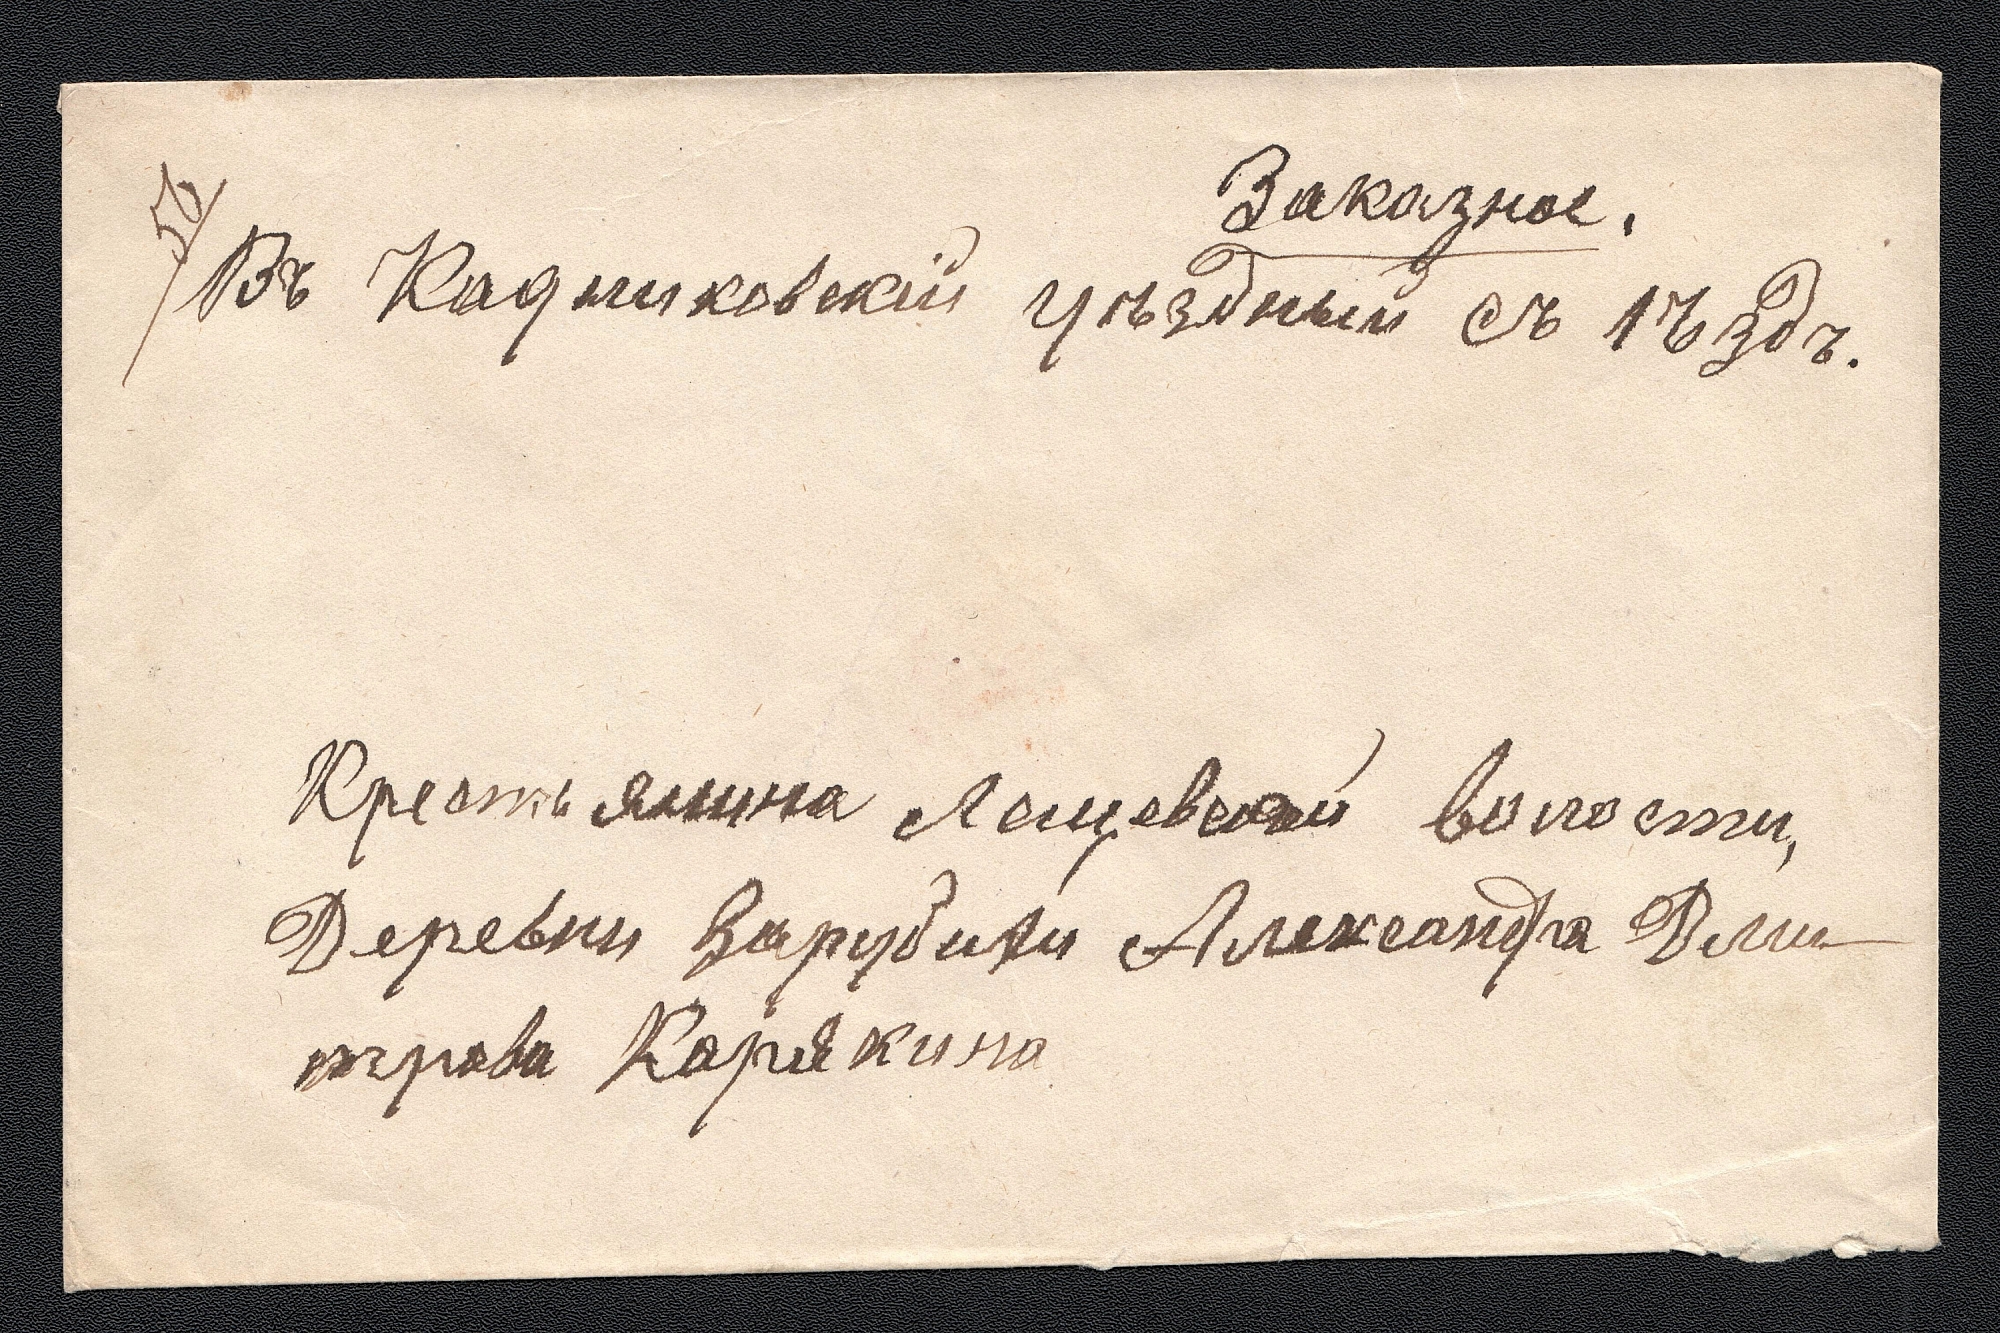 Заказное.
56
Въ Кадниковскій уѣздный съѣздъ.
Крестьянина Лещевской волости,
Деревни Зарубихи Александра Дми-
трова Карякина